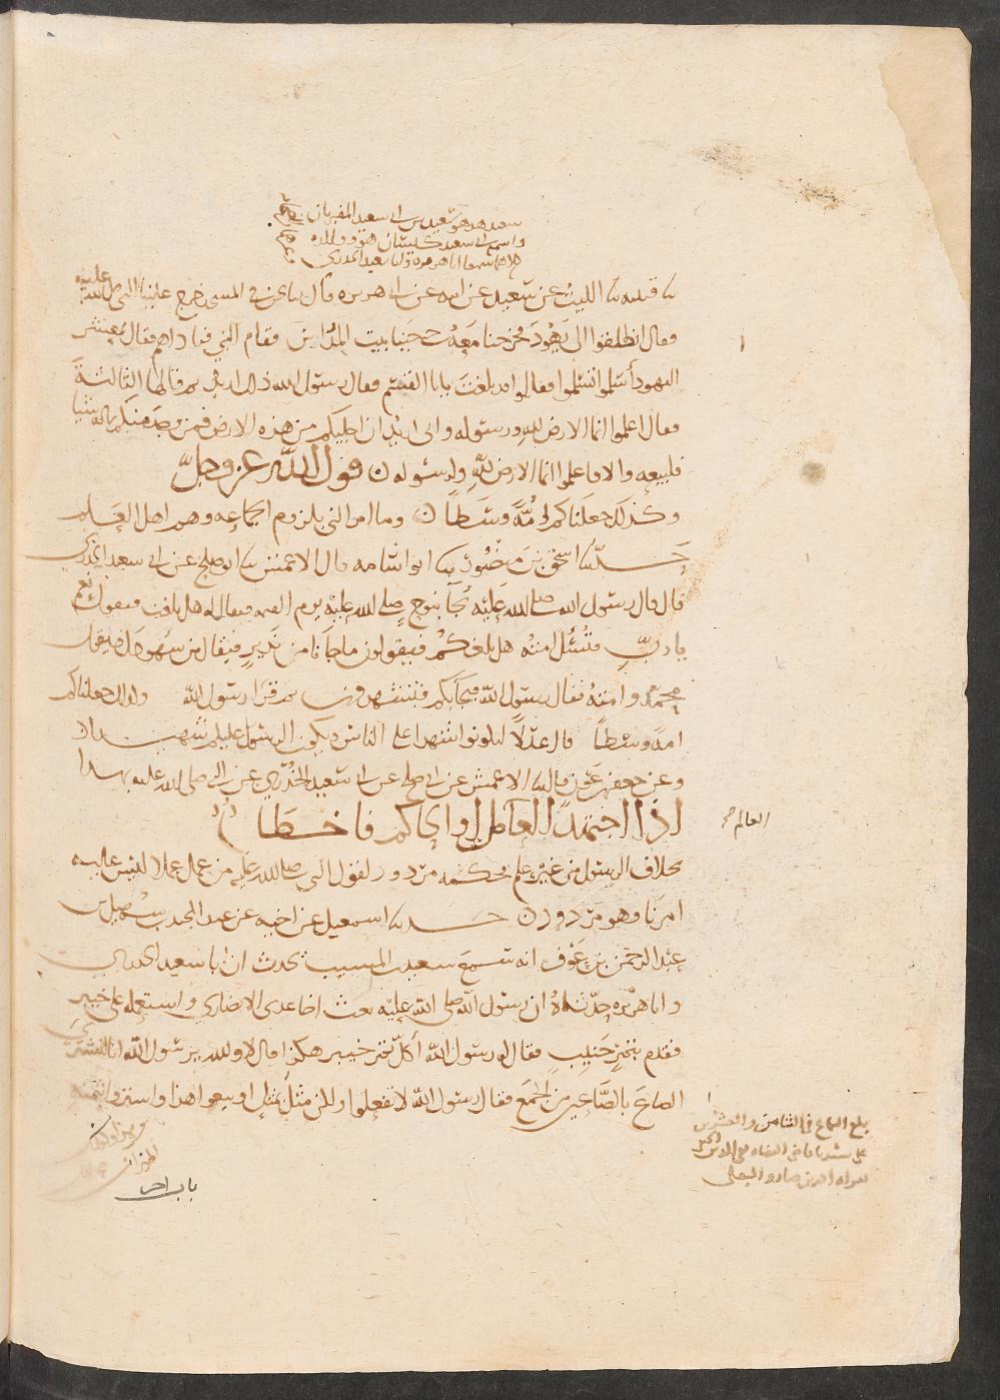 سعيد هو سعيد بن ابي سعيد المقبري
واسم ابي سعيد كيسان هو ووالده
سمعا ابا هريرة وابا سعيد الخدري
نا قتيبه نا الليث عن سعيد عن ابيه عن ابي هريره قال بينا نحن في المسجد خرج علينا النبي صلى الله عليه
فقال انطلقوا الى يهود فخرجنا معه حتى جينا بيت المدراس فقام النبي فناداهم فقال يمعشر
اليهود أسلموا تسلموا فقالوا قد بلغت يابا القسم فقال رسول الله ذلك اريد ثم قالها الثالثة
فقال اعلموا انما الارض لله ورسوله واني اريد ان اجليكم من هذه الارض فمن وجد منكم بماله شيا
فليبعه والا فاعلموا انما الارض لله ولرسوله قول الله عز وجل
وكذلك جعلناكم امة وسطا وما امر النبي بلزوم الجماعه وهم اهل العلم
حدثنا اسحق بن منصور نا ابو اسامه قال الاعمش نا ابو صلح عن ابي سعيد الخدري
قال قال رسول الله صلى الله عليه يجآ بنوح صلى الله عليه يوم القيمه فيقال له هل بلغت فيقول نعم
يا رب فتسئل امته هل بلغكم فيقولون ما جانا من نذير فيقال من شهودك فيقول
محمد وامته فقال رسول الله فيجآ بكم فتشهدون ثم قرا رسول الله وكذلك جعلناكم
امة وسطا قال عدلا لتكونوا شهدا على الناس ويكون الرسول عليكم شهيدا
وعن جعفر بن عون قال نا الاعمش عن ابي صلح عن ابي سعيد الخدري عن النبي صلى الله عليه بهذا
اذا اجتهد العامل او الحاكم فاخطا
العالم
بخلاف الرسول من غير علم فحكمه مردود لقول النبي صلى الله عليه من عمل عملا ليس عليه
امرنا وهو مردود حدثنا اسمعيل عن اخيه عن عبد المجيد بن سهيل بن
عبد الرحمن بن عوف انه سمع سعيد بن المسيب يحدث ان ابا سعيد الخدري
وابا هريره حدثاه ان رسول الله صلى الله عليه بعث اخا عدي الانصاري واستعمله على خيبر
فقدم بتمر جنيب فقال له رسول الله أكل تمر خيبر هكذا قال لا والله يرسول الله انا لنشتري
الصاع بالصاعين من الجمع فقال رسول الله لا تفعلوا ولكن مثل بمثل او بيعوا هذا واشتروا بثمنه
من هذا وكذلك
الميزان
باب اجر
بلغ السماع في الثامن والعشرين
على سيدنا قاضي القضاه